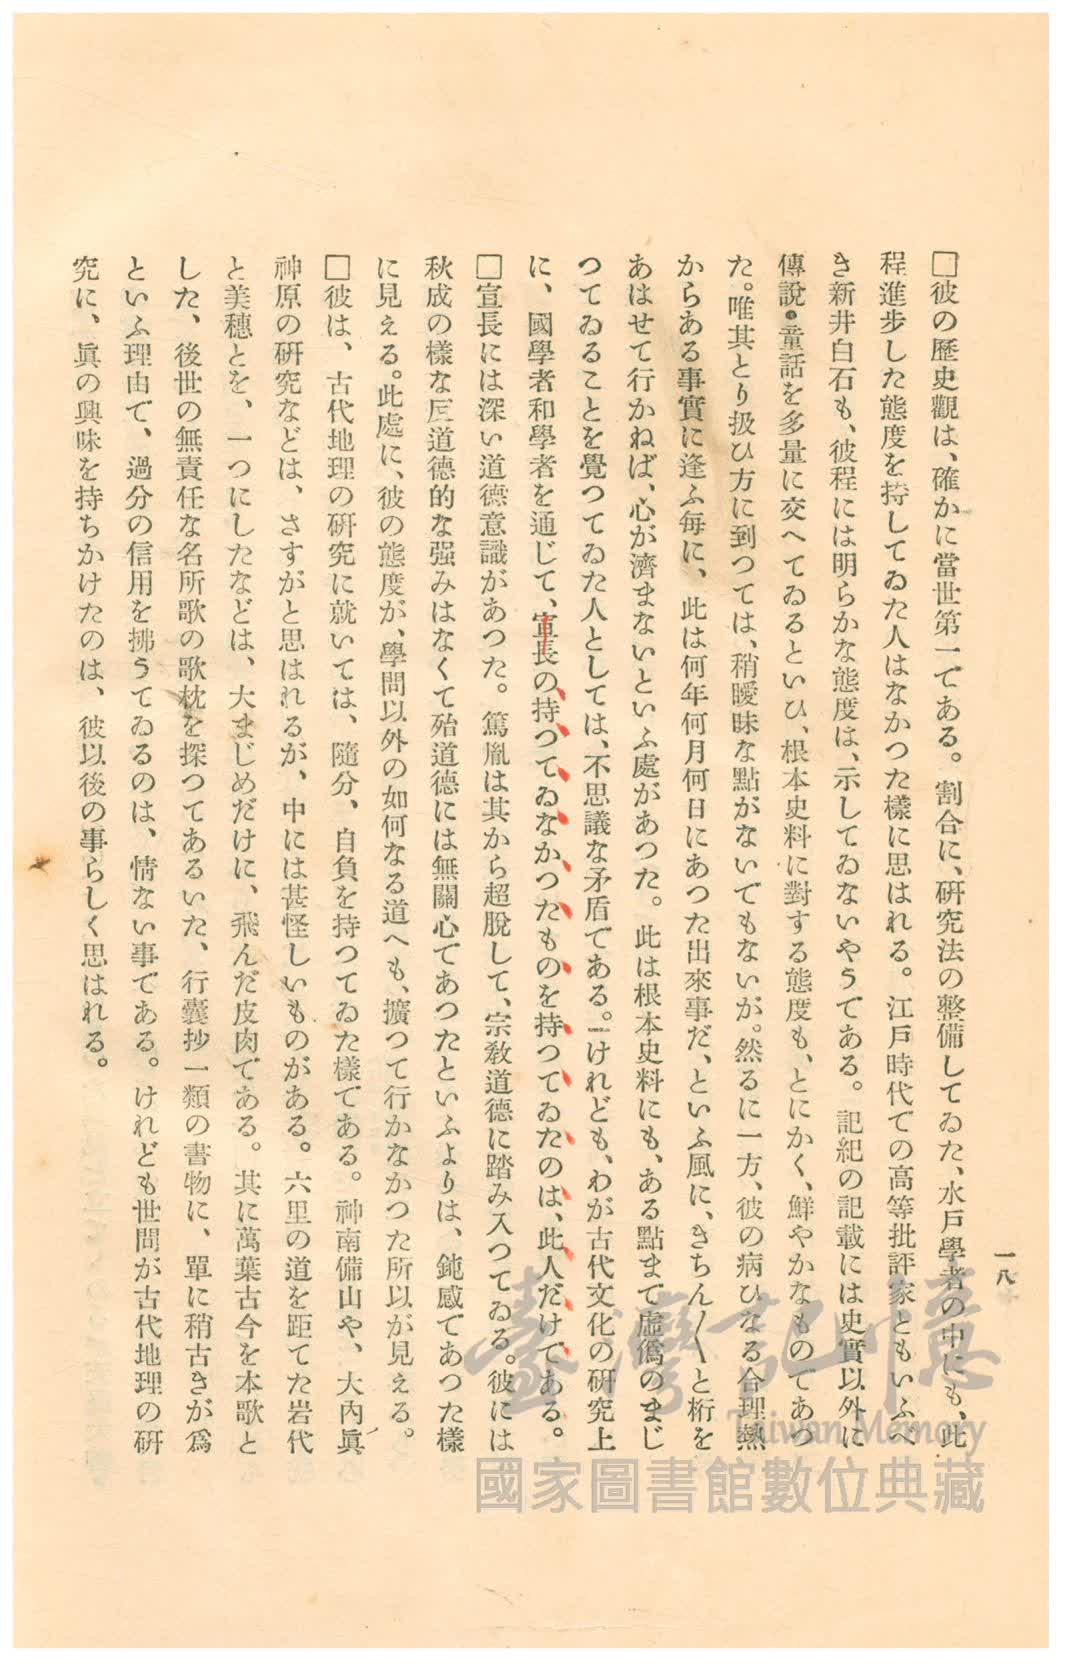 一八
□彼の歷史觀は、確かに當世第一である。割合に、硏究法の整備してゐた、水戸學者の中にも、此
程進步した態度を持してゐた人はなかつた樣に思はれる。江戸時代での高等批評家ともいふべ
き新井白石も、彼程には明らかな態度は、示してゐないやうである。記紀の記載には史實以外に
傳說・童話を多量に交へてゐるといひ、根本史料に對する態度も、とにかく、鮮やかなものであつ
た。唯其とり扱ひ方に到つては、稍曖昧な點がないでもないが。然るに一方、彼の病ひなる合理熱
からある事實に逢ふ每に、此は何年何月何日にあつた出來事だ、といふ風に、きちん〳〵と桁を
あはせて行かねば、心が濟まないといふ處があつた。此は根本史料にも、ある點まで虛僞のまじ
つてゐることを覺つてゐた人としては、不思議な矛盾である。―けれども、わが古代文化の硏究上
に、國學者和學者を通じて、宣長の持つてゐなかつたものを持つてゐたのは、此人だけである。
□宣長には深い道德意識があつた。篤胤は其から超脫して、宗敎道德に踏み入つてゐる。彼には
秋成の樣な反道德的な强みはなくて殆道德には無關心であつたといふよりは、鈍感であつた樣
に見える。此處に、彼の態度が、學問以外の如何なる道へも、擴つて行かなかつた所以が見える。
□彼は、古代地理の硏究に就いては、隨分、自負を持つてゐた樣である。神南備山や、大內眞
神原の硏究などは、さすがと思はれるが、中には甚怪しいものがある。六里の道を距てた岩代
と美穗とを、一つにしたなどは、大まじめだけに、飛んだ皮肉である。其に萬葉古今を本歌と
した、後世の無責任な名所歌の歌枕を探つてあるいた、行囊抄一類の書物に、單に稍古きが爲
といふ理由で、過分の信用を拂うてゐるのは、情ない事である。けれども世間が古代地理の硏
究に、眞の興味を持ちかけたのは、彼以後の事らしく思はれる。
臺灣記憶
Taiwan Memory
國家圖書館數位典藏